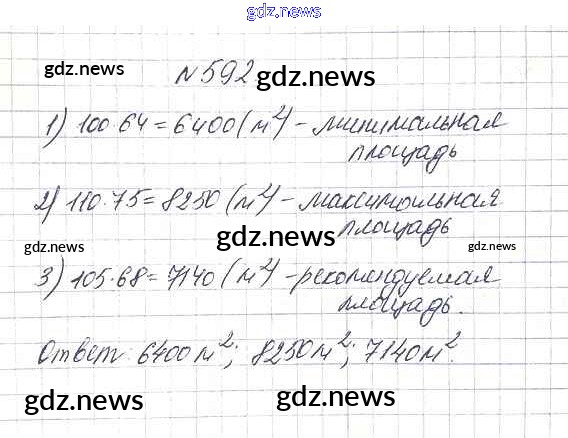 gdz.news
№592
gdz.news
gdz.news
1) 100·64=6400(м²) – минимальная
площадь
2) 110·75=8250(м²) – максимальная
площадь
gdz.news
gdz.news
gdz.news
3) 105·68=7140(м²) – рекомендуемая
площадь.
Ответ: 6400м²; 8250м²; 7140м².
gdz.news
gdz.news